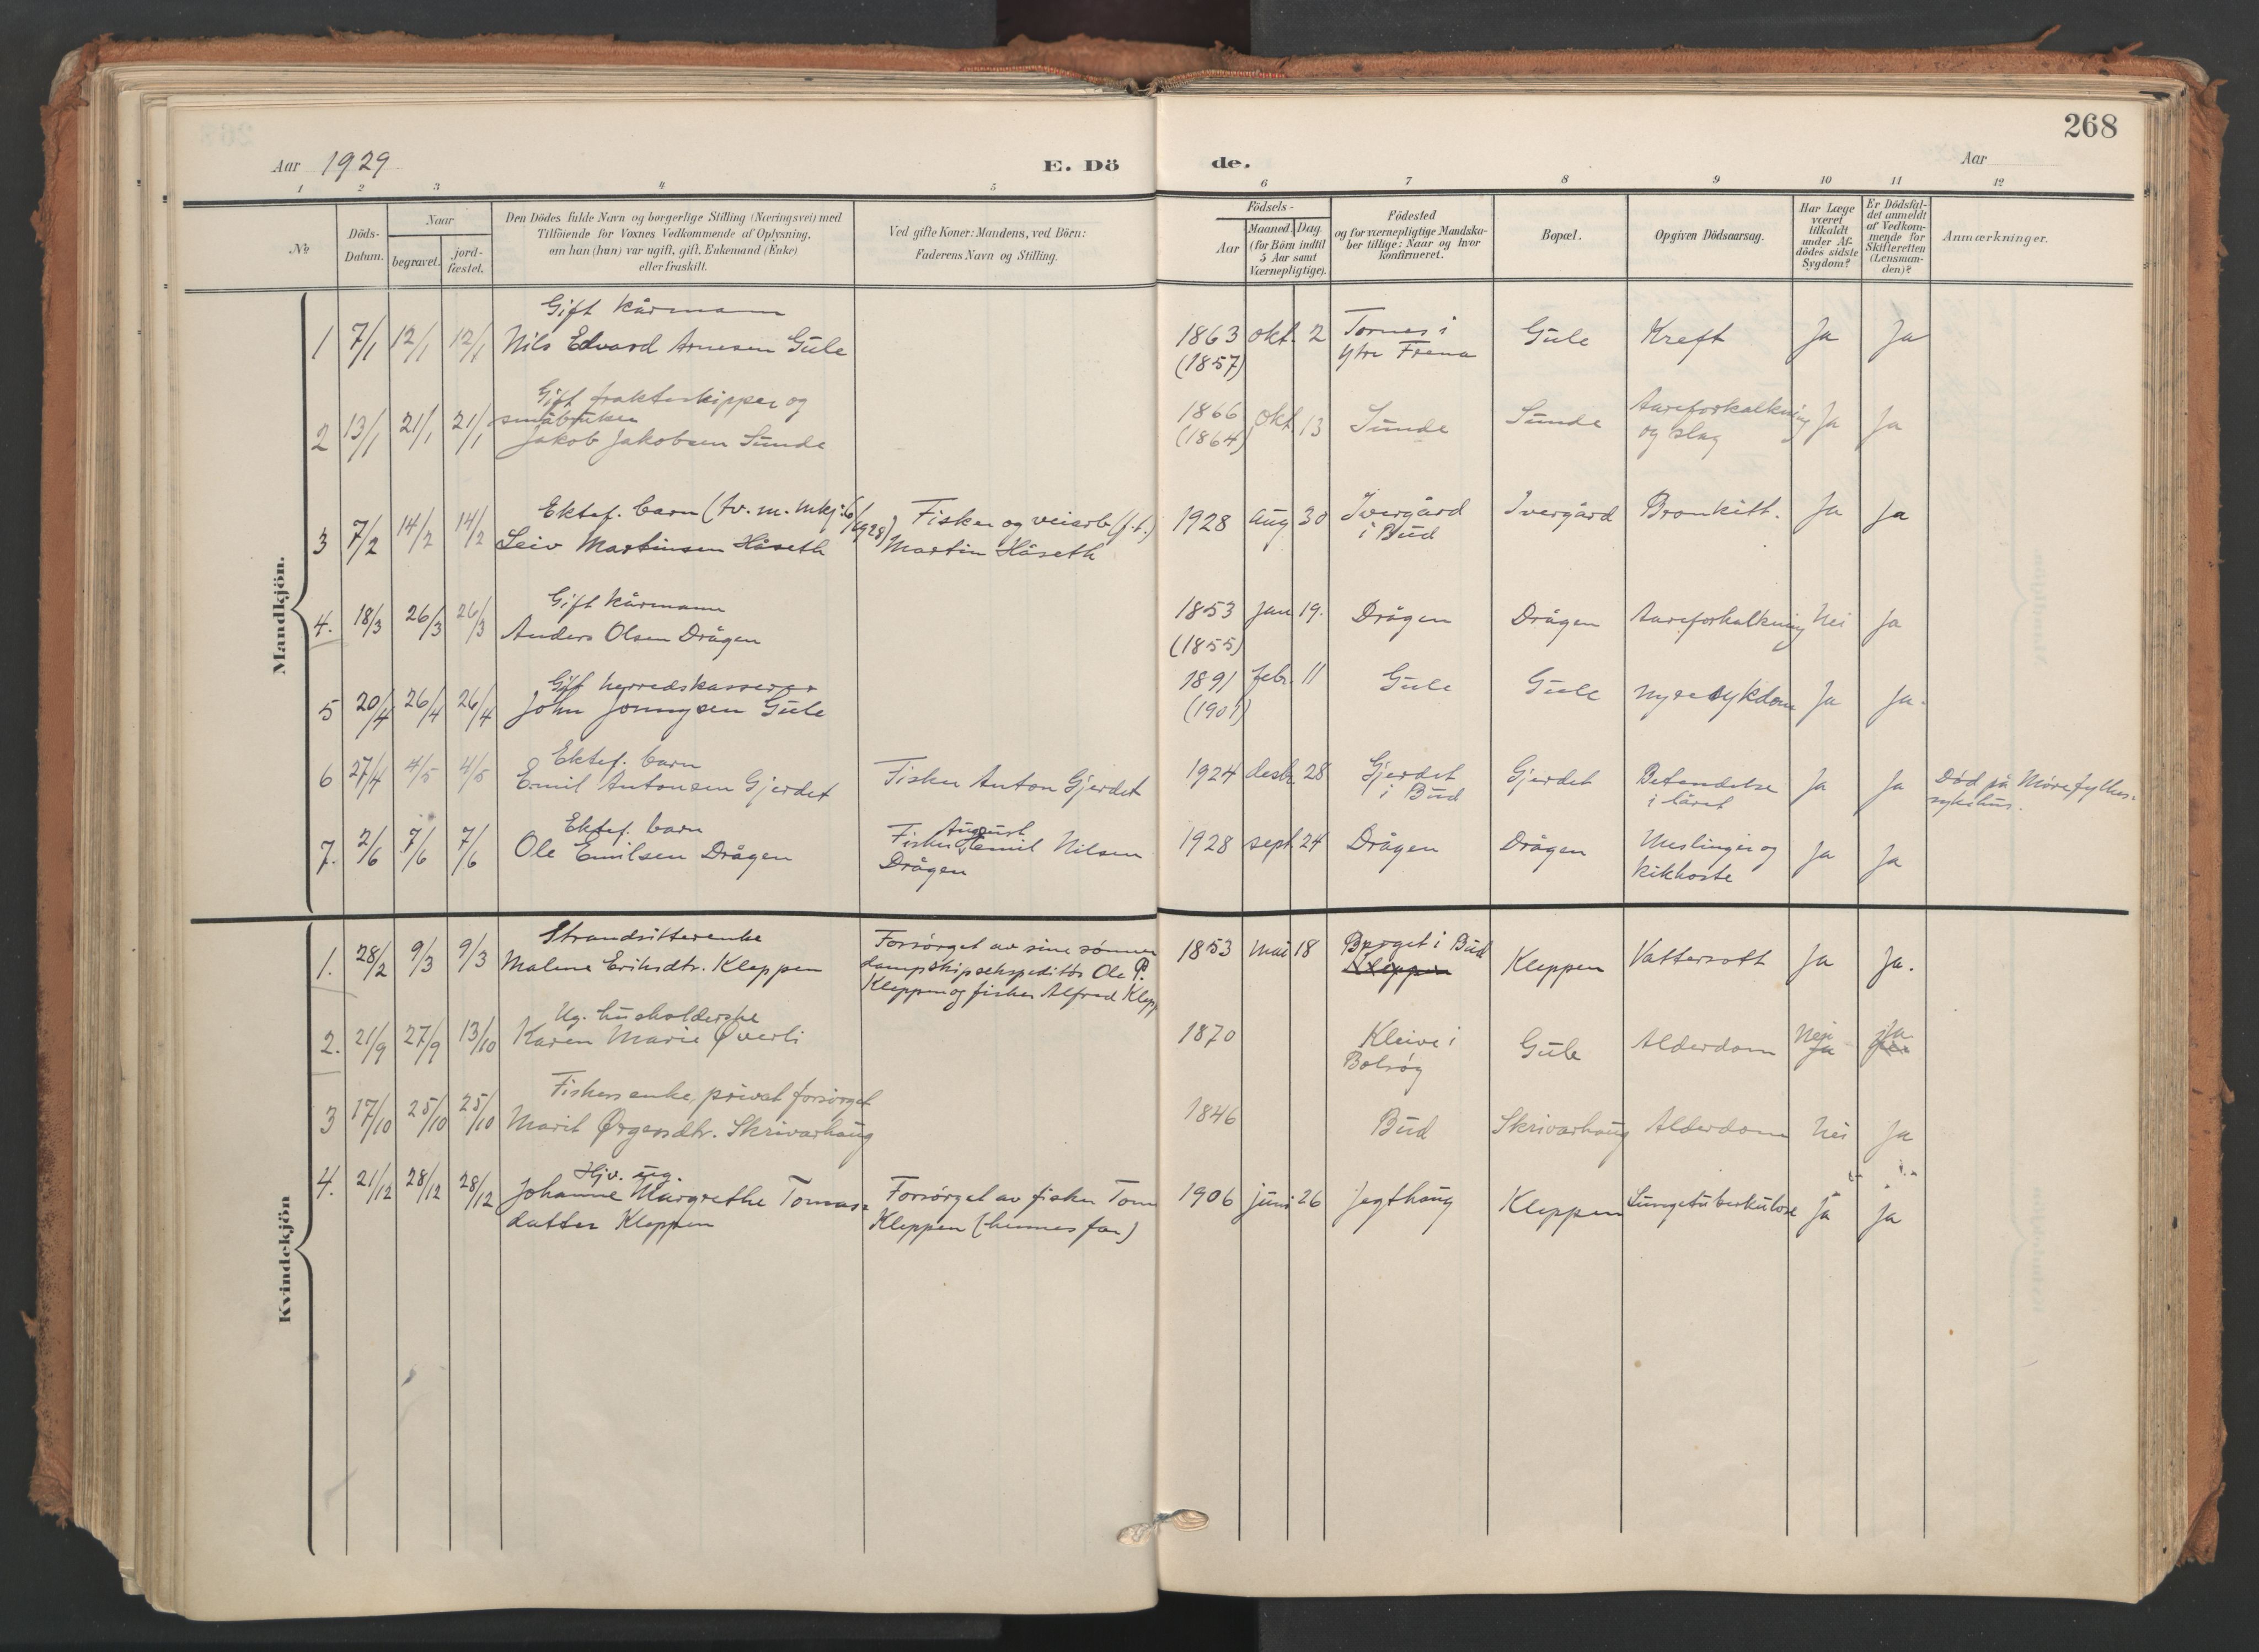 268
Aar 1929
E. Dö
de.
Aar
1 2 3 4 5
6 7 8 9 10 11 12
No
Döds-
Datum.
Naar
begravet.
jord-
fæstet.
Den Dödes fulde Navn og borgerlige Stilling (Næringsvei) med
Tilföiende for Voxnes Vedkommende af Oplysning,
om han (hun) var ugift, gift, Enkemand (Enke)
eller fraskilt.
Ved gifte Koner: Mandens, ved Börn:
Faderens Navn og Stilling.
Födsels-
Aar
Maaned.
Dag
(for Börn indtil
5 Aar samt
Værnepligtige).
Födested
og for værnepligtige Mandska-
ber tillige: Naar og hvor
konfirmeret.
Bopæl.
Opgiven Dödsaarsag.
Har Læge
været
tilkaldt
under Af-
dödes sidste
Sygdom?
Er Dödsfal-
det anmeldt
af Vedkom-
mende for
Skifteretten
(Lensman-
den)?
Anmærkninger.
Mandkjön.
Gift kårmann
1 7/1 12/1 12/1 Nils Edvard Arnesen Gule 1863 okt. 2 Tornes i Gule Kreft Ja Ja
(1857) ytre Fræna
Gift frakteskipper og
småbruker
2 13/1 21/1 21/1 Jakob Jakobsen Sunde 1866 okt. 13 Sunde Sunde Aareforkalkning Ja Ja
(1864) og slag
Ektef. barn (tv. m. mkj. 6/1928) Fisker og veiarb. (f.t.)
3 7/2 14/2 14/2 Leiv Martinsen Håseth Martin Håseth 1928 aug 30 Ivergård Ivergård Bronkitt. Ja Ja
i Bud
Gift kårmann
4. 18/3 26/3 26/3 Anders Olsen Drågen 1853 jan 19. Drågen Drågen Aareforkalkning Nei Ja
(1855)
Gift herredskasserer
5 20/4 26/4 26/4 John Jonnysen Gule 1891 febr. 11 Gule Gule Nyresykdom Ja Ja.
(1901)
Ektef. barn
6 27/4 4/5 4/5 Emil Antonsen Gjerdet Fisker Anton Gjerdet 1924 desbr 28 Gjerdet Gjerdet Betendelse Ja Ja Død på Møre fylkes-
i Bud i låret sykehus.
Ektef. barn August
7. 2/6 7/6 7/6 Ole Emilsen Drågen Fisker Emil Nilsen 1928 sept 24 Drågen Drågen Meslinger og Ja Ja
Drågen kikhoste
Kvindekjön
Strandsitterenke Forsørget av sine sønner
1. 28/2 9/3 9/3 Malene Eriksdtr. Kleppen dampskipsekspeditør Ole P. 1853 mai 18 Berget i Bud Kleppen Vattersott Ja Ja.
Kleppen og fisker Alfred Klepp Kleppen
Ug. husholderske
2. 21/9 27/9 13/10 Karen Marie Øverli 1870 Kleive i Gule Alderdom Nei Ja
Bolsøy Ja
Fiskers enke, privat forsørget
3 17/10 25/10 25/10 Marit Ørgersdtr. Skrivarhaug 1846 Bud Skrivarhaug Alderdom Nei Ja
Hjv. ug.
4. 21/12 28/12 28/12 Johanne Margrethe Tomas- Forsørget av fisker Tom 1906 juni 26 Jegthaug Kleppen Lungetuberkulose Ja Ja
datter Kleppen Kleppen (hennes far)